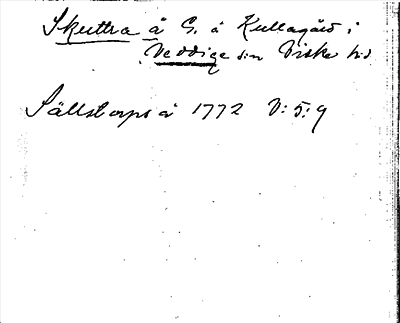 Skuttra å S. å Kullagård i
Veddige sn Viske hd
Sällstorps å 1772 V:5:9